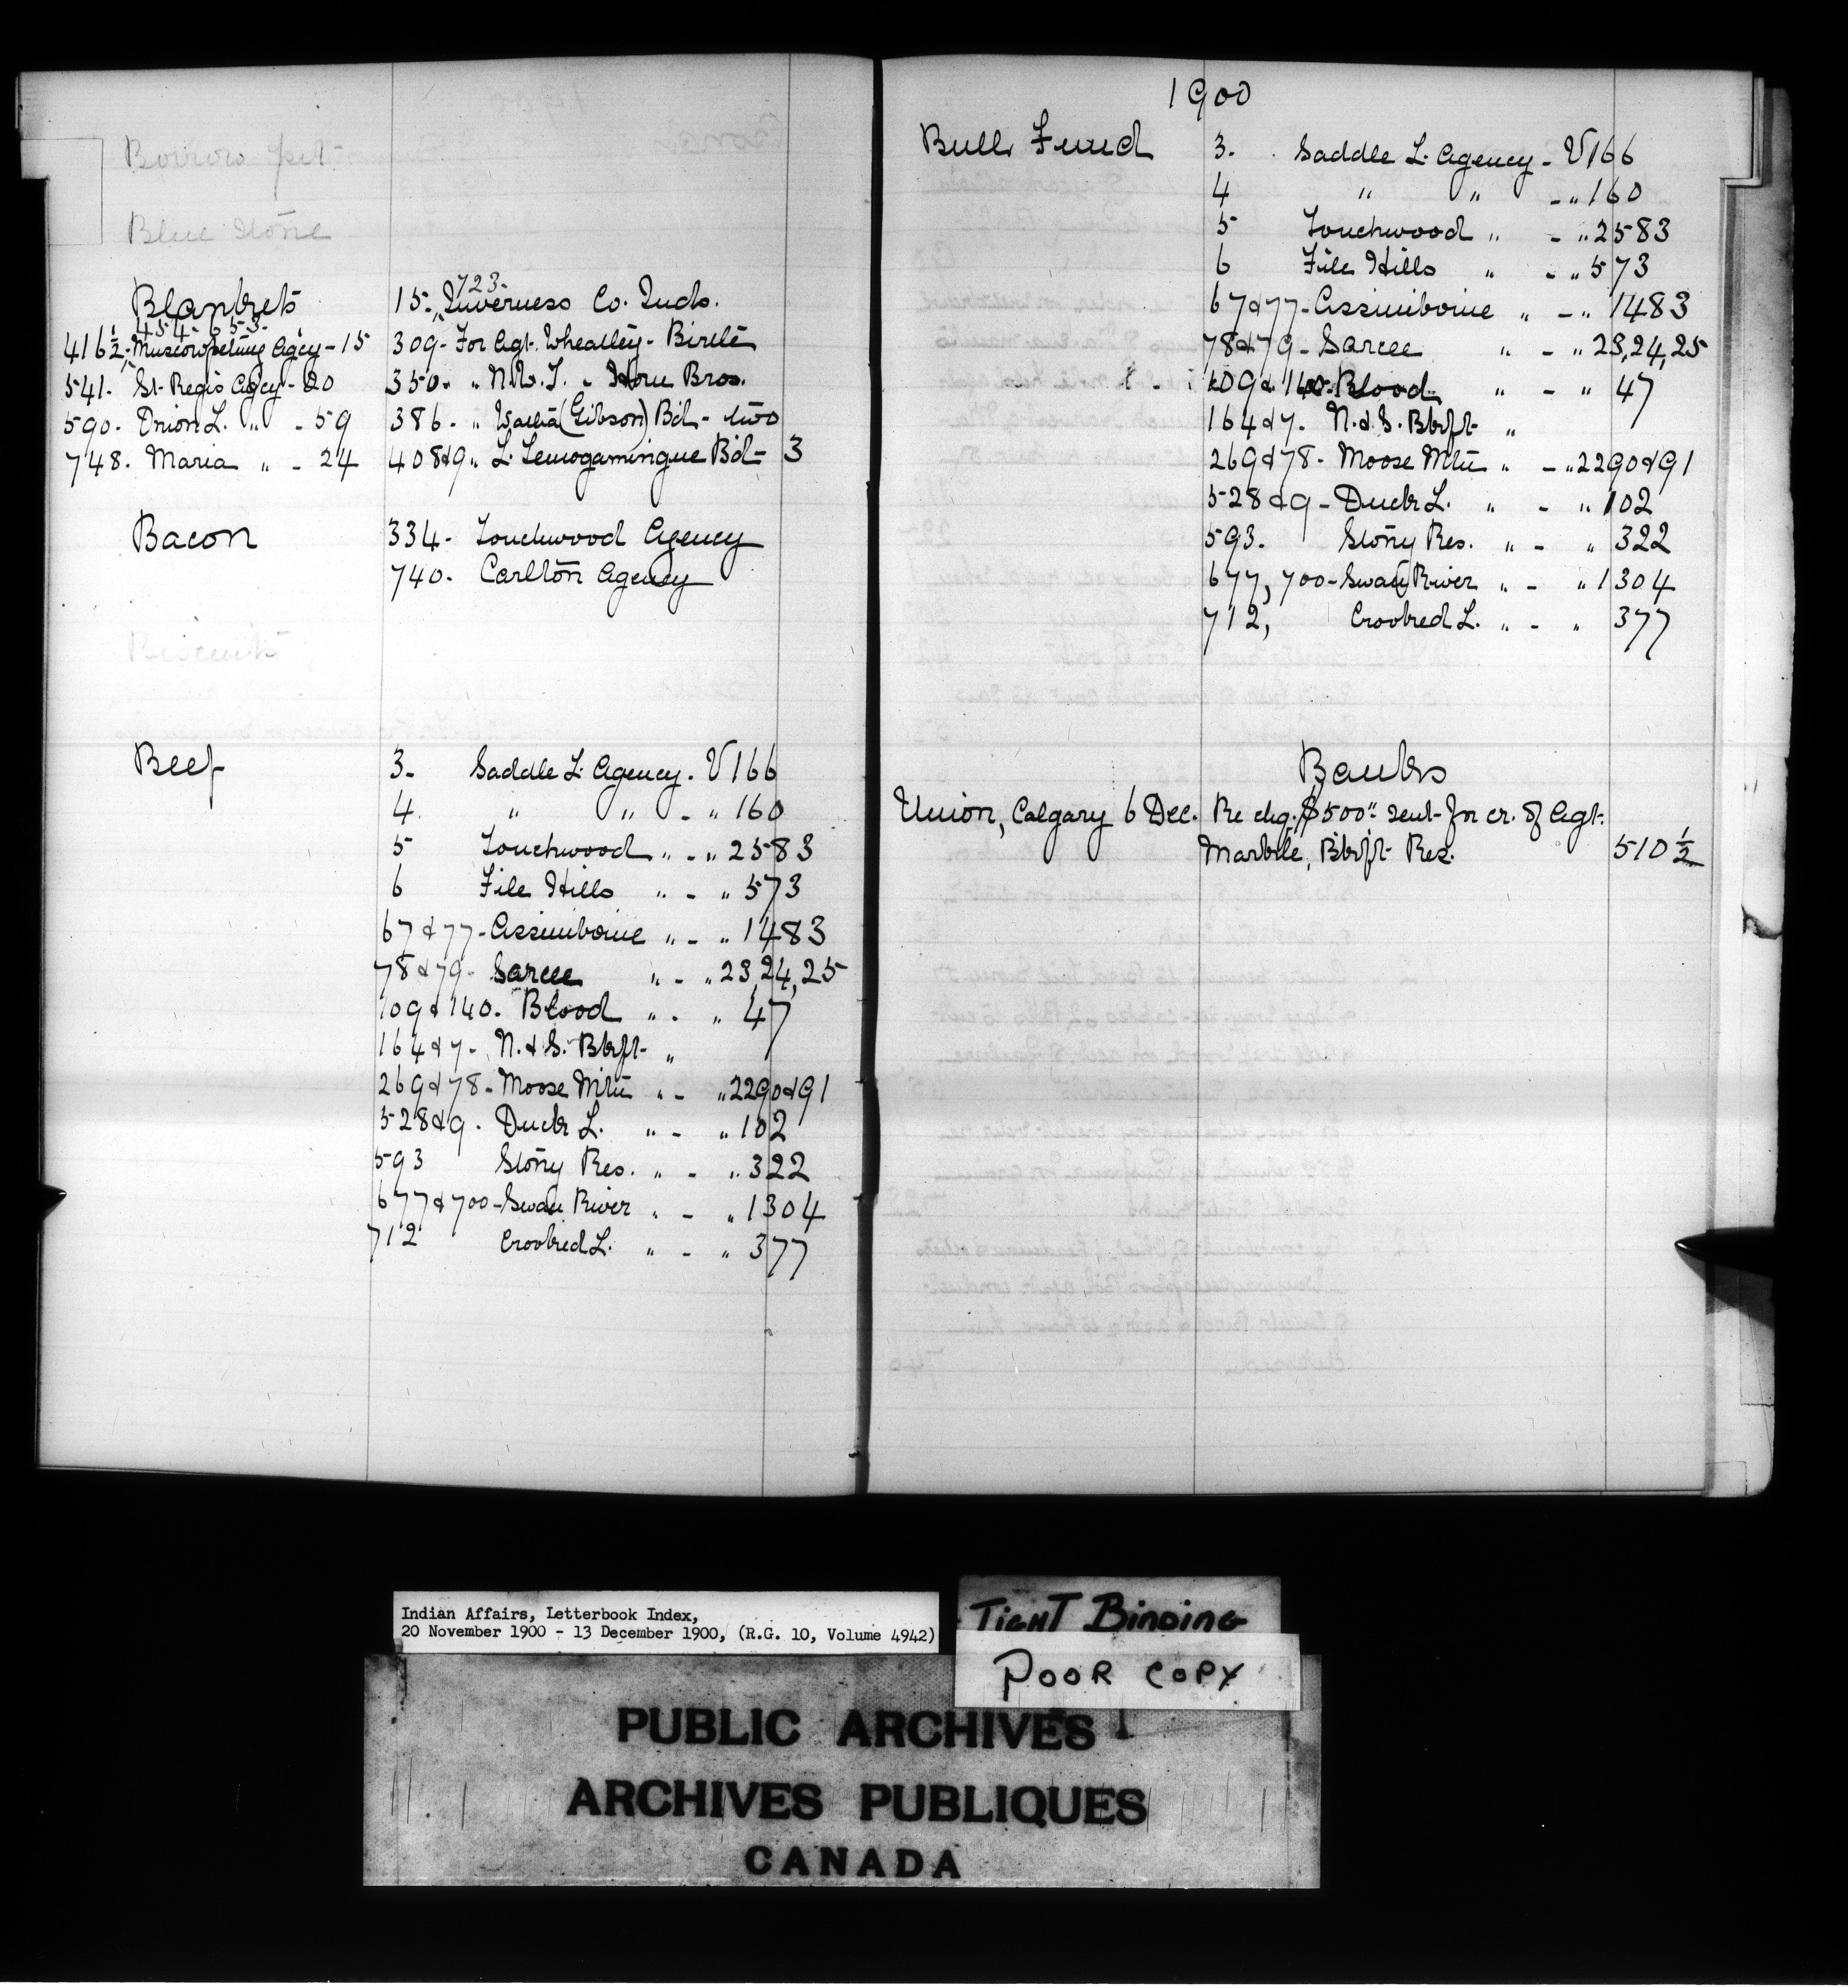 Borrow pit
Blue Stone
Blankets
454. 653.
416½. Muscowpetung Agcy - 15
541. St. Regis Agcy - 20
590. Onion L. " - 59
748. Maria " - 24
723.
15. Inverness Co. Inds.
309 - For Agt. Wheatley - Birtle
350. " N.W.T. - Bros.
386 - " (Gibson) Bd. - two
408&9 " L. Temogamingue Bd - 3
Bacon
334 - Touchwood Agency
740. Carlton Agency
Biscuits
Beef
3. Saddle L. Agency. V 166
4 " " - " 160
5 Touchwood " - " 2583
6 File Hills " - " 573
67 & 77 - Assiniboine " - " 1483
78 & 79 - Sarcee " - " 23,24,25
109 & 140. Blood " - " 47
164 & 7 - N. & S. Bkft "
269 & 78 - Moose Mtn " - " 2290&91
528&9. Duck L. " - " 102
593 Stony Res. " - " 322
677 & 700 - Swan River " - " 1304
712 Crooked L. " - " 377
1900
Bull Fund
3. Saddle L. Agency - V 166
4 " " - " 160
5 Touchwood " - " 2583
6 File Hills " - " 573
67&77 - Assiniboine " - " 1483
78&79 - Sarcee " - " 23,24,25
109 & 140. Blood " - " 47
164&7. N. & S. Bkft "
269&78 - Moose Mtn " - " 2290&91
528&9 - Duck L. " - " 102
593. Stony Res. " - " 322
677, 700 - Swan River " - " 1304
712, Crooked L. " - " 377
Banks
Union, Calgary 6 Dec. Re chq. $500" sent for cr. of Agt.
Markle, Bkft Res. 510½
Indian Affairs, Letterbook Index,
20 November 1900 - 13 December 1900, (R.G. 10, Volume 4942)
TIGHT BINDING
POOR COPY
PUBLIC ARCHIVES
ARCHIVES PUBLIQUES
CANADA